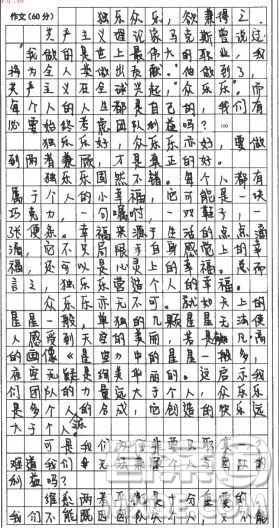 作文(60分) 独乐众乐，欲兼得之
共产主义理论家马克斯曾说过：
"我做的是世上最伟大的职业，我
将为全人类做出贡献。"他做到了，
共产主义在全球兴起"众乐乐"。而
每个人的人生都是自己的，我们有
必要始终考虑团队利益吗？
独乐乐好，众乐乐亦好，要做
到两者兼顾，才是真正的好。
独乐乐固然不错。每个人都有
属于个人的小幸福，它可能是一块
巧克力，一句嘱咐，一双鞋子，一
张便条。幸福来源于生活的点点滴
滴，它不只局限于自身感觉上的幸
福，还可以是心灵上的幸福。总而
言之，独乐乐营造个人的幸福。
众乐乐亦无不可。就如天上的
星星一般，单独的几颗星星无法使
人感受到天空的美丽，若是
的画像《星空》中的星星一般多，
夜空无疑是绝美华丽的。这启示我
们团队的力量远大于个人，众乐乐
是多个人的合成，它创造的快乐远
大于个人乐。
可是我们为什么要
难道我们争无法兼顾个人与团队的
利益吗？
维系两者平衡是十分重要的。
我们不能既因团队个人，又不能